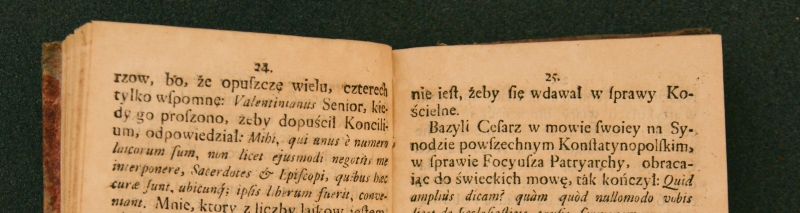 24.
rzow, bo, że opuſzczę wielu, czterech
tylko wſpomnę: Valentinianus Senior, kie-
dy go proſzono, żeby dopuścił Koncili-
um, odpowiedział: Mihi, qui unus è numero
laicorum ſum, non licet ejuſmodi negotiis me
interponere, Sacerdotes & Epiſcopi, quibus hæc
curæ ſunt, ubicunq; ipſis liberum fuerit, conve-
niant. Mnie, ktory z liczby laikow jeſtem
25.
nie ieſt, żeby ſię wdawał w ſprawy Ko-
ścielne.
Bazyli Ceſarz w mowie ſwoiey na Sy-
nodzie powſzechnym Konſtatynopolſkim,
w ſprawie Focyuſza Patryarchy, obraca-
iąc do świeckich mowę, ták kończył: Quid
ampliùs dicam? quàm quòd nullomodo vobis